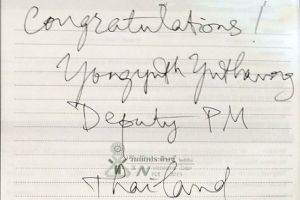 Congratulations!
Yongyuth Yuthavong
Deputy PM
วันนักประดิษฐ์
Thailand